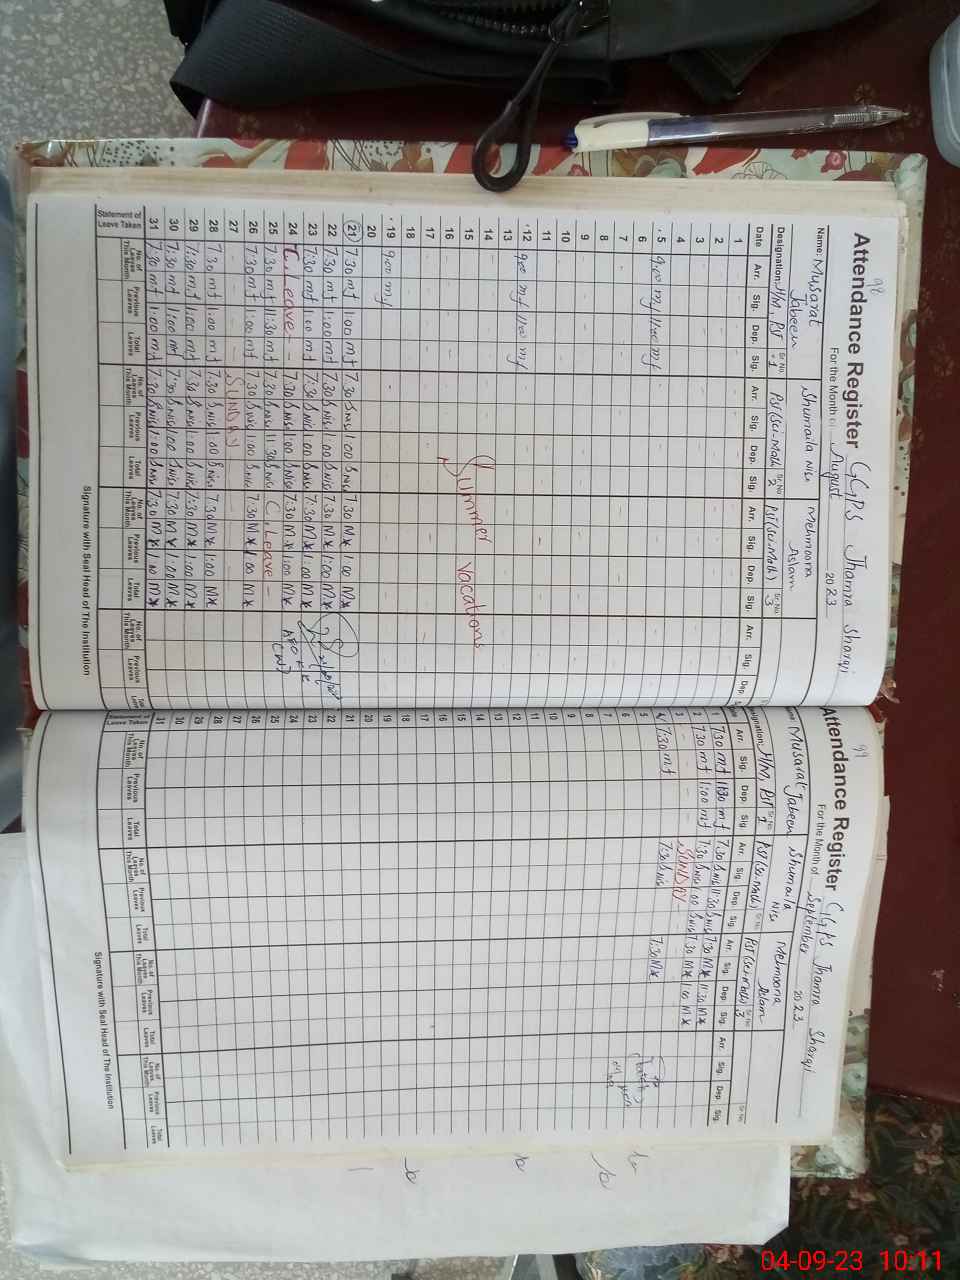 98
Attendance Register GGPS Jhamra Sharqi
For the Month of August 2023
Name: Musarat Jabeen Shumaila Nisa Mehmoona Aslam
Designation: H/M, PST Sr.No. 1 PST (Sci-Math) Sr.No. 2 PST (Sci.Math) Sr.No. 3
Date Arr. Sig. Dep. Sig. Arr. Sig. Dep. Sig. Arr. Sig. Dep. Sig. Arr. Sig. Dep.
1
2
3
4
5 9:00 mf 11:00 mf
6
7
8
9
10
11
12 9:00 mf 11:00 mf
13
14
15 Summer vacations
16
17
18
19 9:00 mf
20
21 7:30 mf 1:00 mf 7:30 S.Nisa 1:00 S.Nisa 7:30 M* 1:00 M*
22 7:30 mf 1:00 mf 7:30 S.Nisa 1:00 S.Nisa 7:30 M* 1:00 M*
23 7:30 mf 1:00 mf 7:30 S.Nisa 1:00 S.Nisa 7:30 M* 1:00 M*
24 C. Leave 7:30 S.Nisa 1:00 S.Nisa 7:30 M* 1:00 M*
25 7:30 mf 11:30 mf 7:30 S.Nisa 11:30 S.Nisa C. Leave
26 7:30 mf 1:00 mf 7:30 S.Nisa 1:00 S.Nisa 7:30 M* 1:00 M*
27 SUNDAY
28 7:30 mf 1:00 mf 7:30 S.Nisa 1:00 S.Nisa 7:30 M* 1:00 M*
29 7:30 mf 1:00 mf 7:30 S.Nisa 1:00 S.Nisa 7:30 M* 1:00 M*
30 7:30 mf 1:00 mf 7:30 S.Nisa 1:00 S.Nisa 7:30 M* 1:00 M*
31 7:30 mf 1:00 mf 7:30 S.Nisa 1:00 S.Nisa 7:30 M* 1:00 M*
Statement of Leave Taken No. of Leaves This Month Previous Leaves Total Leaves No. of Leaves This Month Previous Leaves Total Leaves No. of Leaves This Month Previous Leaves Total Leaves No. of Leaves This Month Previous Leaves
Signature with Seal Head of The Institution
99
Attendance Register GGPS Jhamra Sharqi
For the Month of September 2023
Name: Musarat Jabeen Shumaila Nisa Mehmoona Aslam
Designation: H/M, PST Sr.No. 1 PST (Sci.Math) Sr.No. PST (Sci-Math) Sr.No. 3 Sr.No.
Arr. Sig. Dep. Sig. Arr. Sig. Dep. Sig. Arr. Sig. Dep. Sig. Arr. Sig. Dep. Sig.
1 7:30 mf 11:30 mf 7:30 S.Nisa 11:30 S.Nisa 7:30 M* 11:30 M*
2 7:30 mf 1:00 mf 7:30 S.Nisa 1:00 S.Nisa 7:30 M* 1:00 M*
3 SUNDAY
4 7:30 mf 7:30 S.Nisa 7:30 M*
5
6
7
8
9
10
11
12
13
14
15
16
17
18
19
20
21
22
23
24
25
26
27
28
29
30
31
Statement of Leave Taken No. of Leaves This Month Previous Leaves Total Leaves No. of Leaves This Month Previous Leaves Total Leaves No. of Leaves This Month Previous Leaves Total Leaves No. of Leaves This Month Previous Leaves Total Leaves
Signature with Seal Head of The Institution
04-09-23 10:11